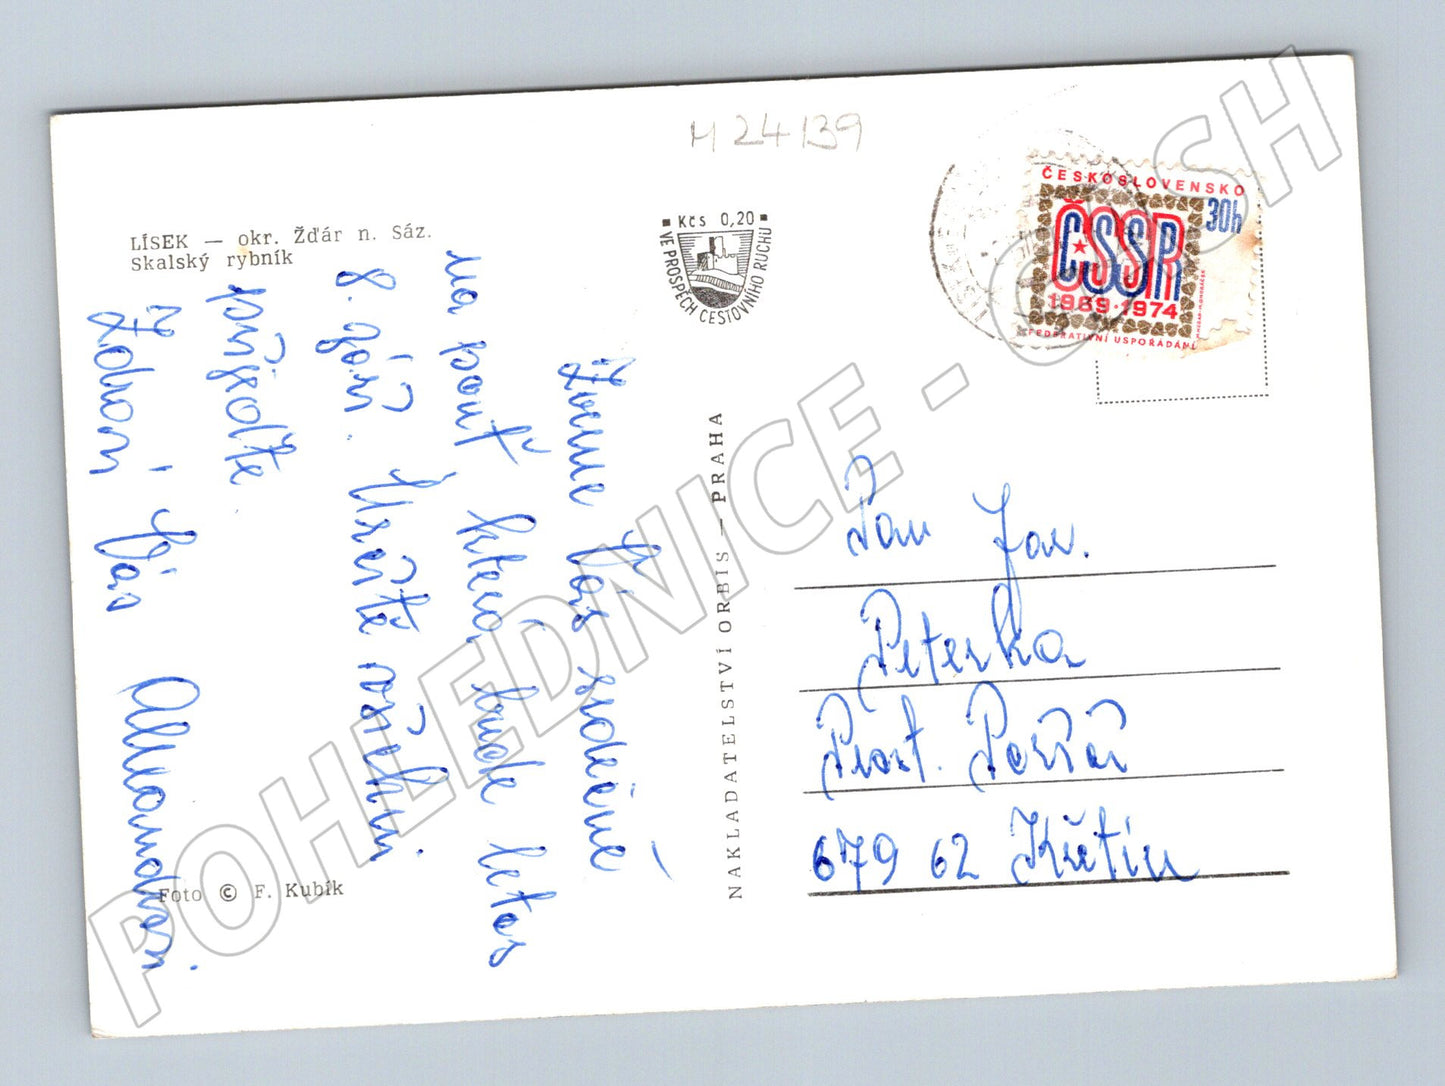 M 24139
LÍSEK — okr. Žďár n. Sáz.
Skalský rybník
Kčs 0,20
VE PROSPĚCH CESTOVNÍHO RUCHU
ČESKOSLOVENSKO
30h
ČSSR
1969·1974
FEDERATIVNÍ USPOŘÁDÁNÍ
Zveme Vás srdečně
na pouť která bude letos
8. září. Určitě všichni
přijeďte
Zdraví Vás
NAKLADATELSTVÍ ORBIS — PRAHA
Pan Jar.
Peterka
Prost. Poříčí
679 62 Křetín
Foto © F. Kubík
POHLEDNICE - CO.SH